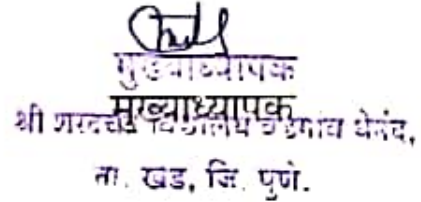 मुख्याध्यापक
मुख्याध्यापक
श्री शरदचंद्र विद्यालय वडगांव धेनंद,
ता. खेड, जि. पुणे.